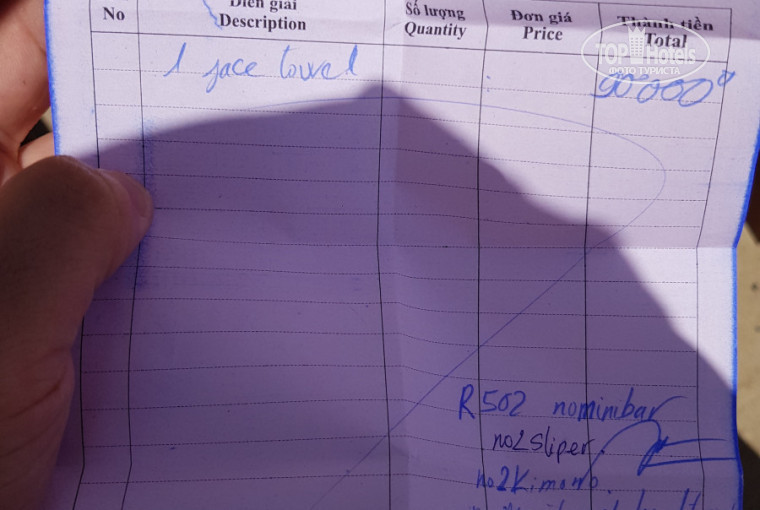 No
Diễn giải
Description
Số lượng
Quantity
Đơn giá
Price
Thành tiền
Total
TopHotels
ФОТО ТУРИСТА
1 face towel
90'000đ
R502 nominibar
no2Sliper
no2Kimono